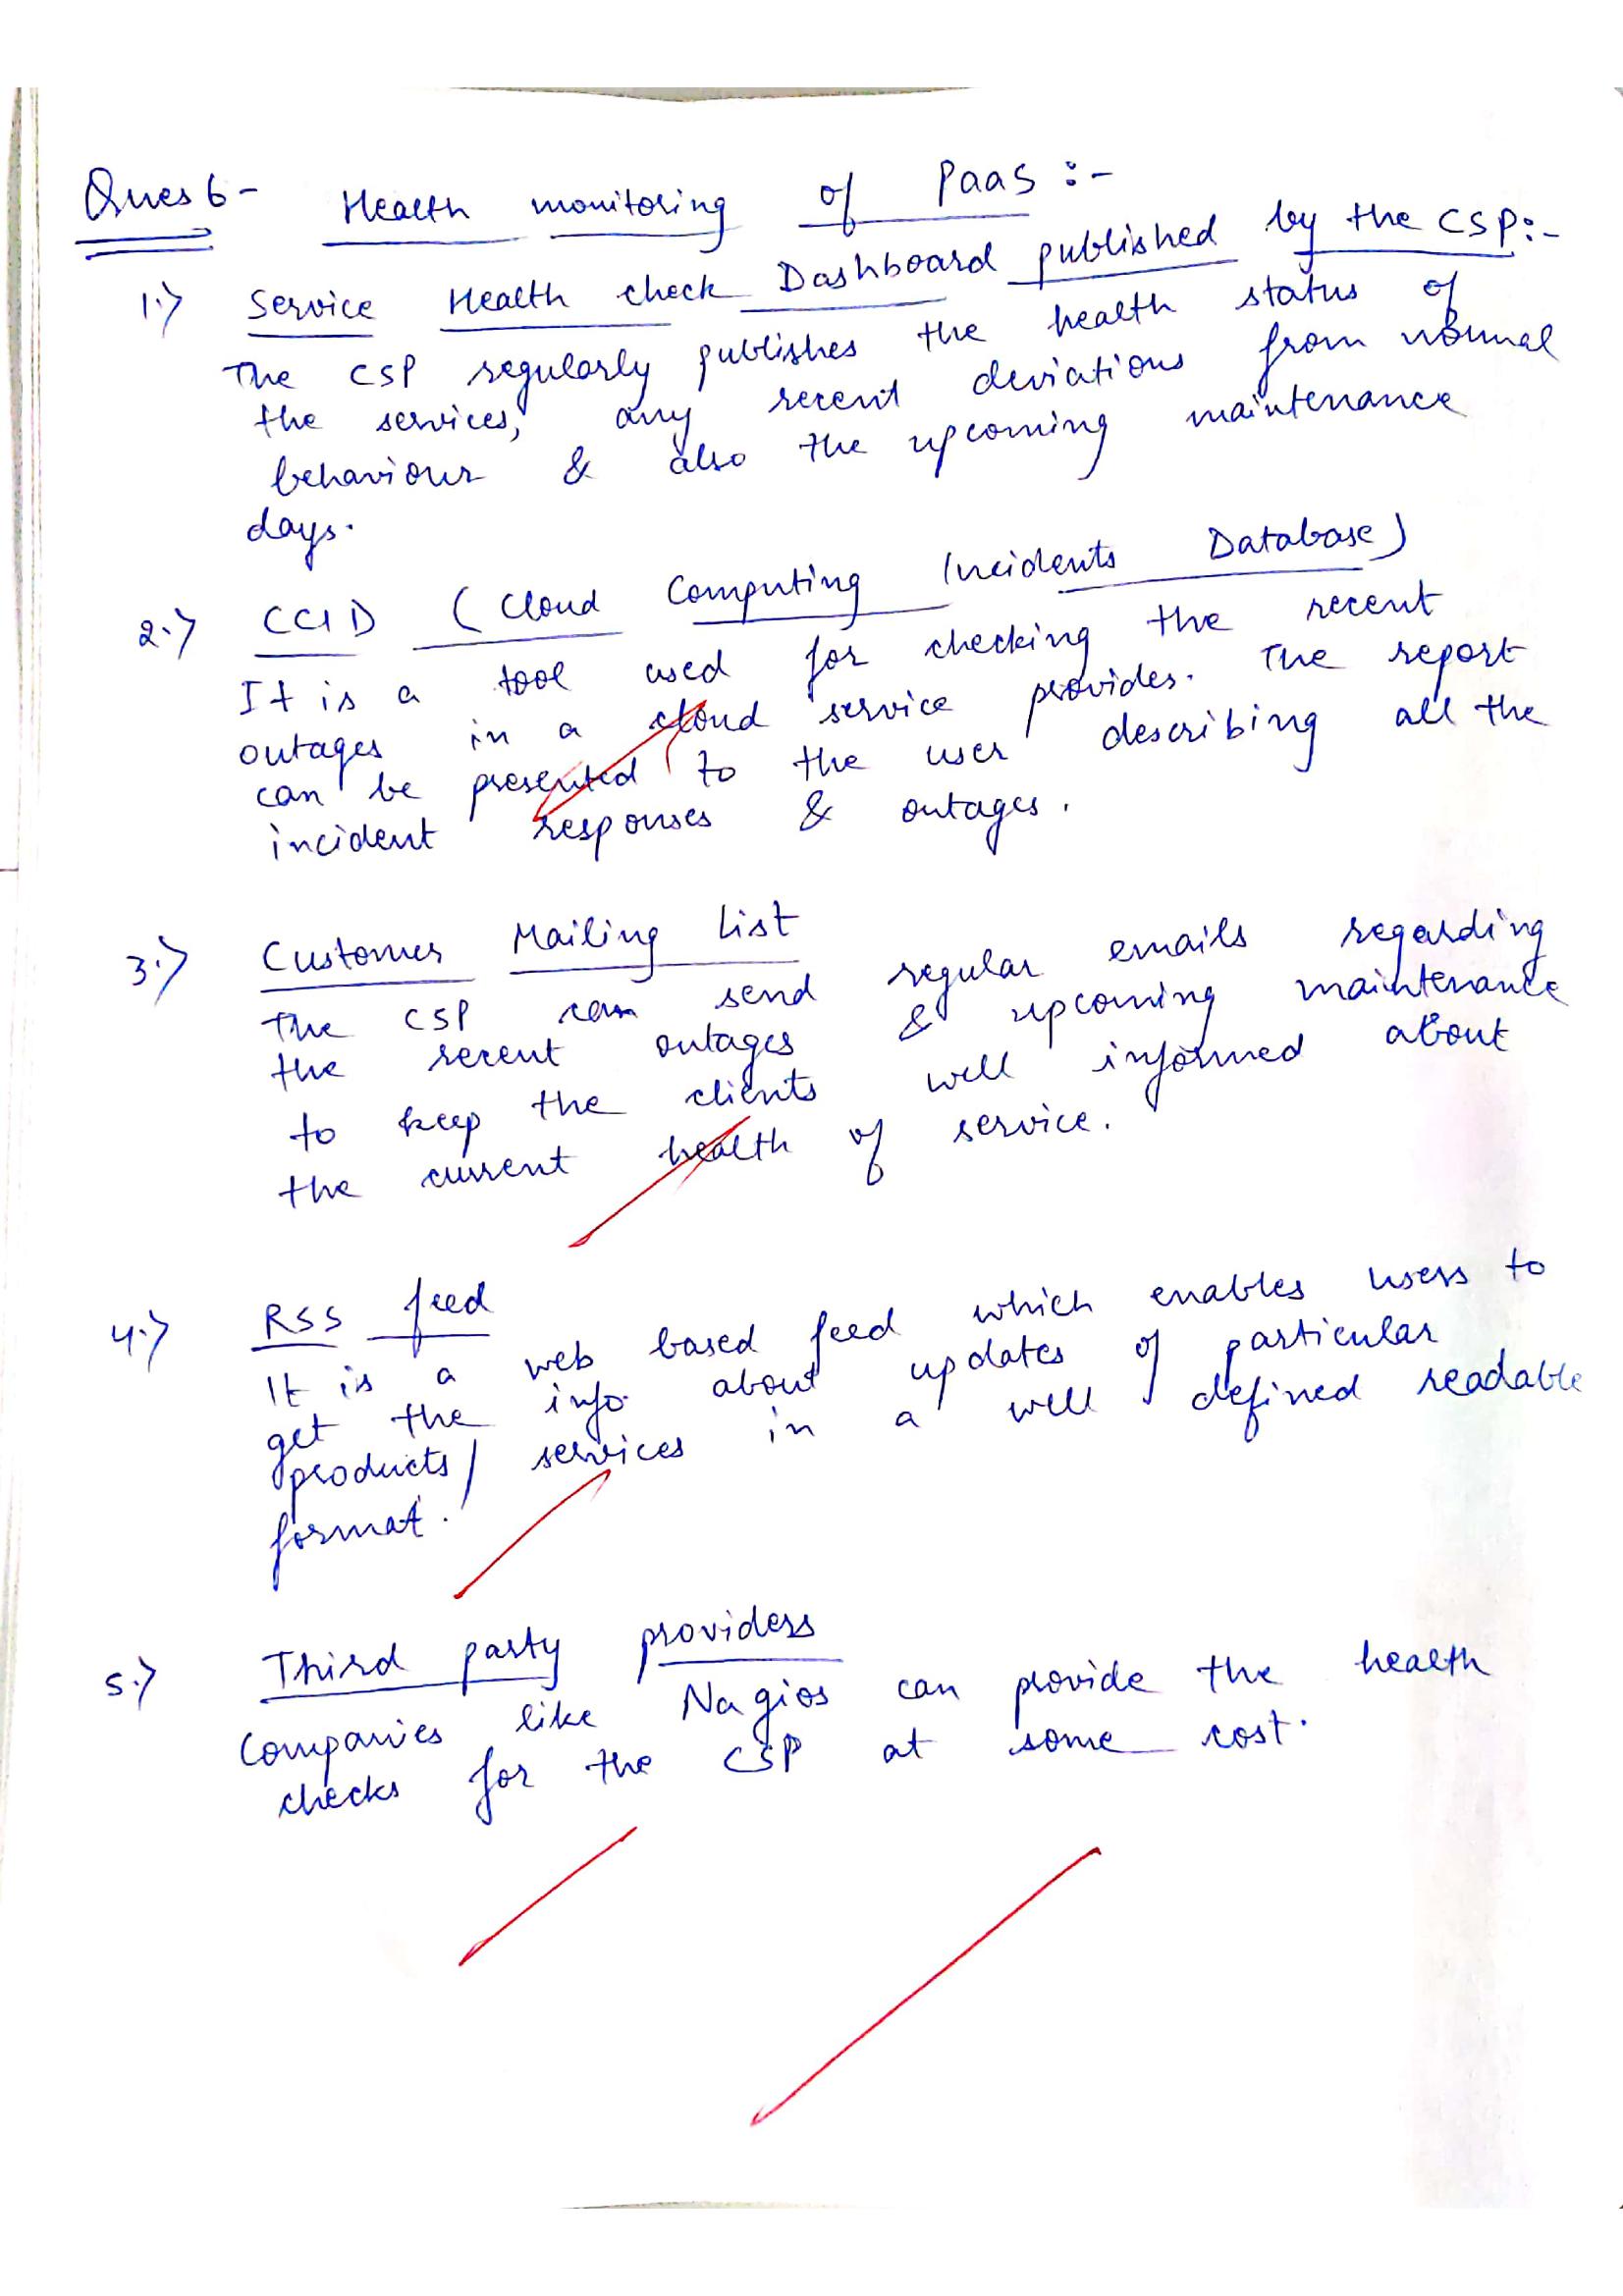 Ques 6- Health monitoring of PaaS :-
1.) Service Health check Dashboard published by the CSP:-
The CSP regularly publishes the health status of
the services, any recent deviations from normal
behaviour & also the upcoming maintenance
days.
2.) CCID (Cloud Computing Incidents Database)
It is a tool used for checking the recent
outages in a cloud service provides. The report
can be presented to the user describing all the
incident responses & outages.
3.) Customer Mailing List
The CSP can send regular emails regarding
the recent outages & upcoming maintenance
to keep the clients well informed about
the current health of service.
4.) RSS feed
It is a web based feed which enables users to
get the info. about updates of particular
products/ services in a well defined readable
format.
5.) Third party providers
Companies like Nagios can provide the health
checks for the CSP at some cost.